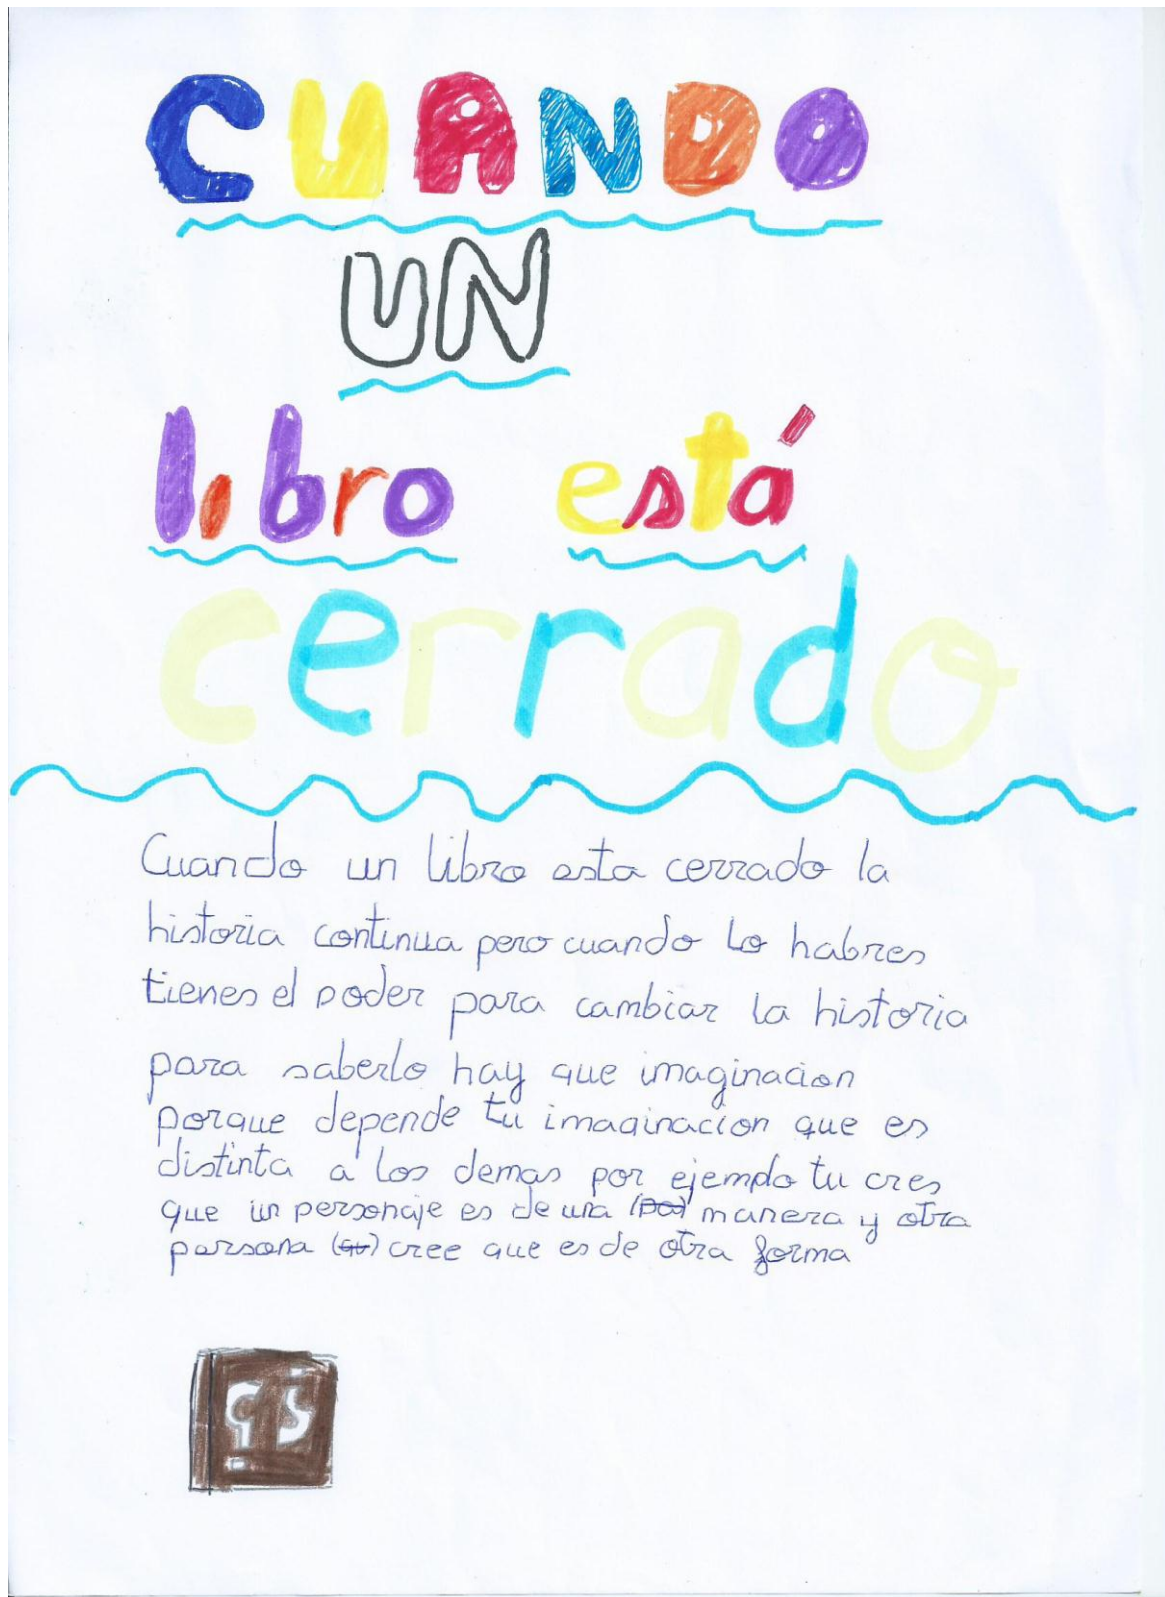 CUANDO
UN
libro está
cerrado
Cuando un libro esta cerrado la
historia continua pero cuando lo habres
tienes el poder para cambiar la historia
para saberlo hay que imaginacion
porque depende tu imaginacion que es
distinta a los demas por ejemplo tu cres
que un personaje es de una (pa) manera y otra
persona (qu) cree que es de otra forma